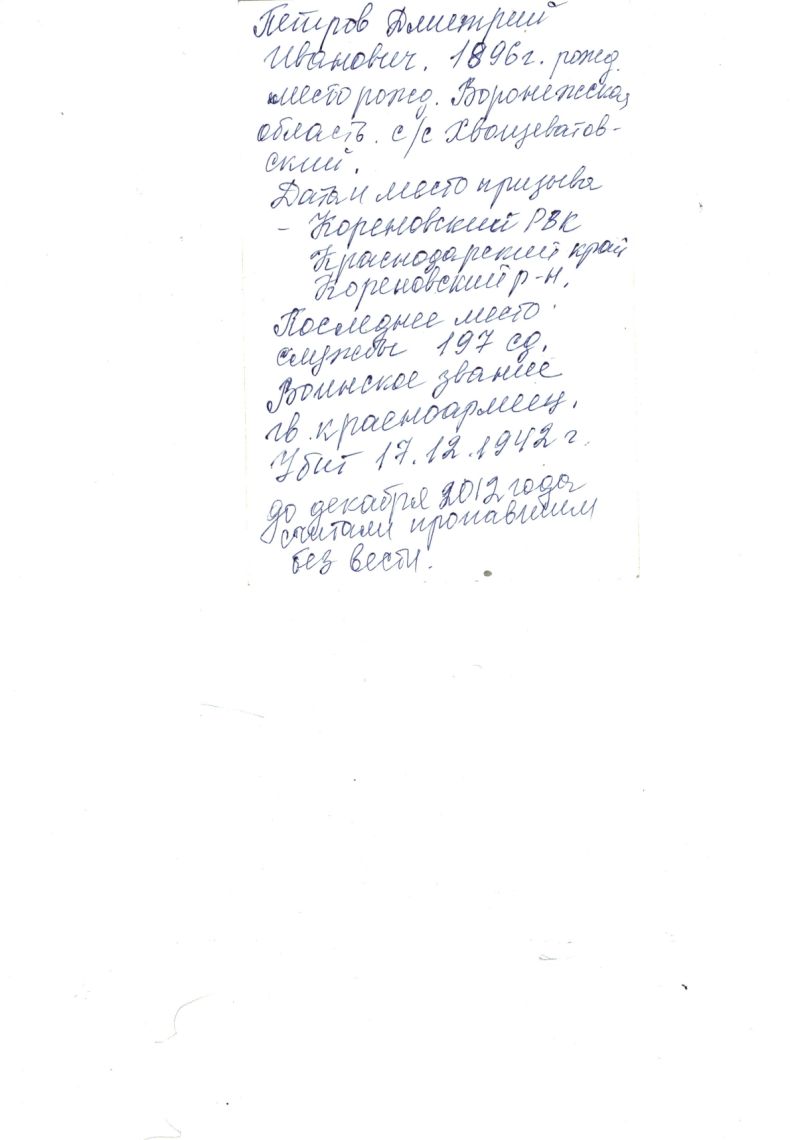 Петров Дмитрий
Иванович. 1896г. рожд.
место рожд. Воронежская
область. с/с Хвощеватов-
ский.
Дата и место призыва
- Кореновский РВК
Краснодарский край
Кореновский р-н.
Последнее место
службы 197 сд.
Воинское звание
гв. красноармеец.
Убит 17.12.1942 г.
до декабря 2012 года
считали пропавшим
без вести.